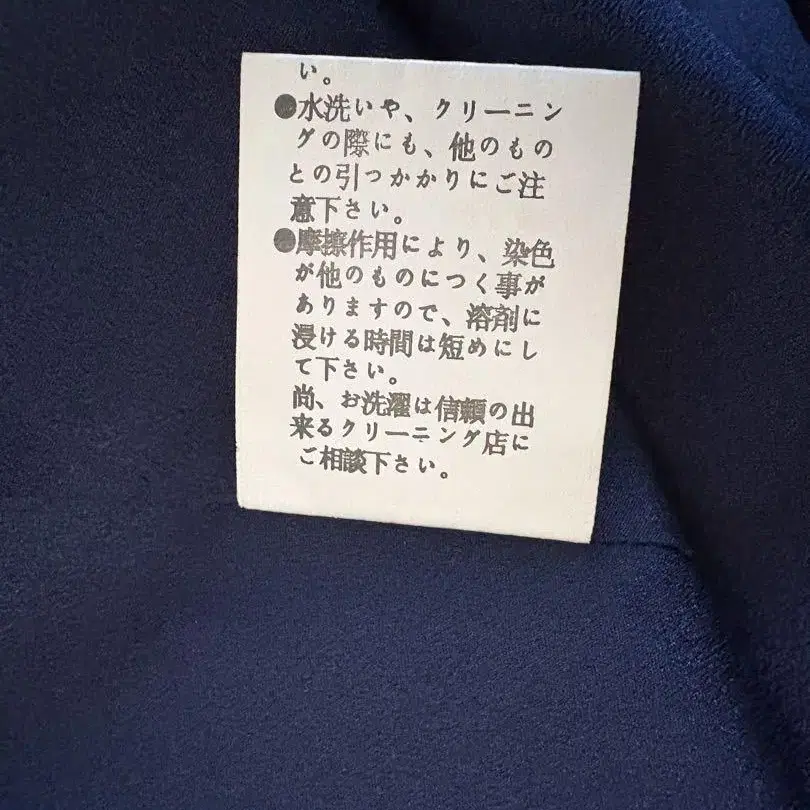 い。
●水洗いや、クリーニン
グの際にも、他のもの
との引つかかりにご注
意下さい。
●摩擦作用により、染色
が他のものにつく事が
ありますので、溶剤に
浸ける時間は短めにし
て下さい。
尚、お洗濯は信頼の出
来るクリーニング店に
ご相談下さい。